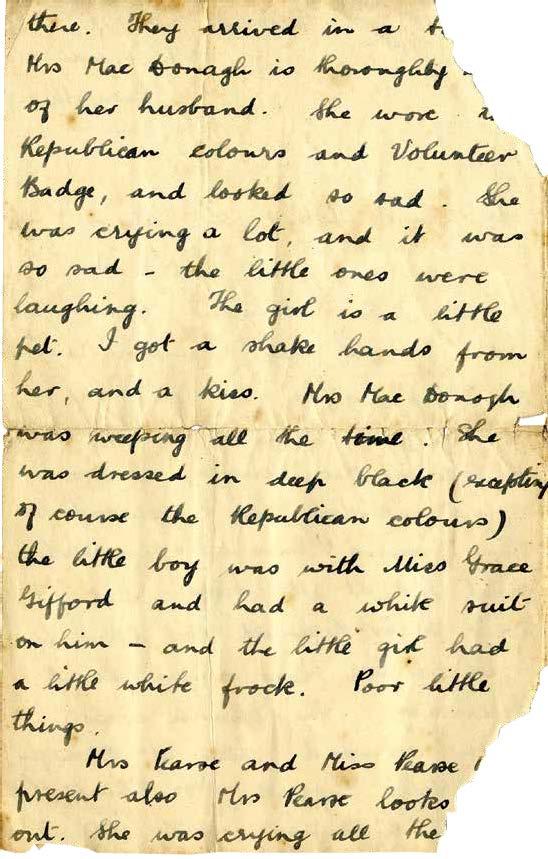 there. They arrived in a
Mrs Mac Donagh is thoroughly
of her husband. She wore
Republican colours and Volunteer
Badge, and looked so sad. She
was crying a lot, and it was
so sad - the little ones were
laughing. The girl is a little
pet. I got a shake hands from
her, and a kiss. Mrs Mac Donogh
was weeping all the time. She
was dressed in deep black (excepting
of course the Republican colours)
the little boy was with Miss Grace
Gifford and had a white suit
on him - and the little girl had
a little white frock. Poor little
things.
Mrs Pearse and Miss Pearse
present also Mrs Pearse looks
out. She was crying all the